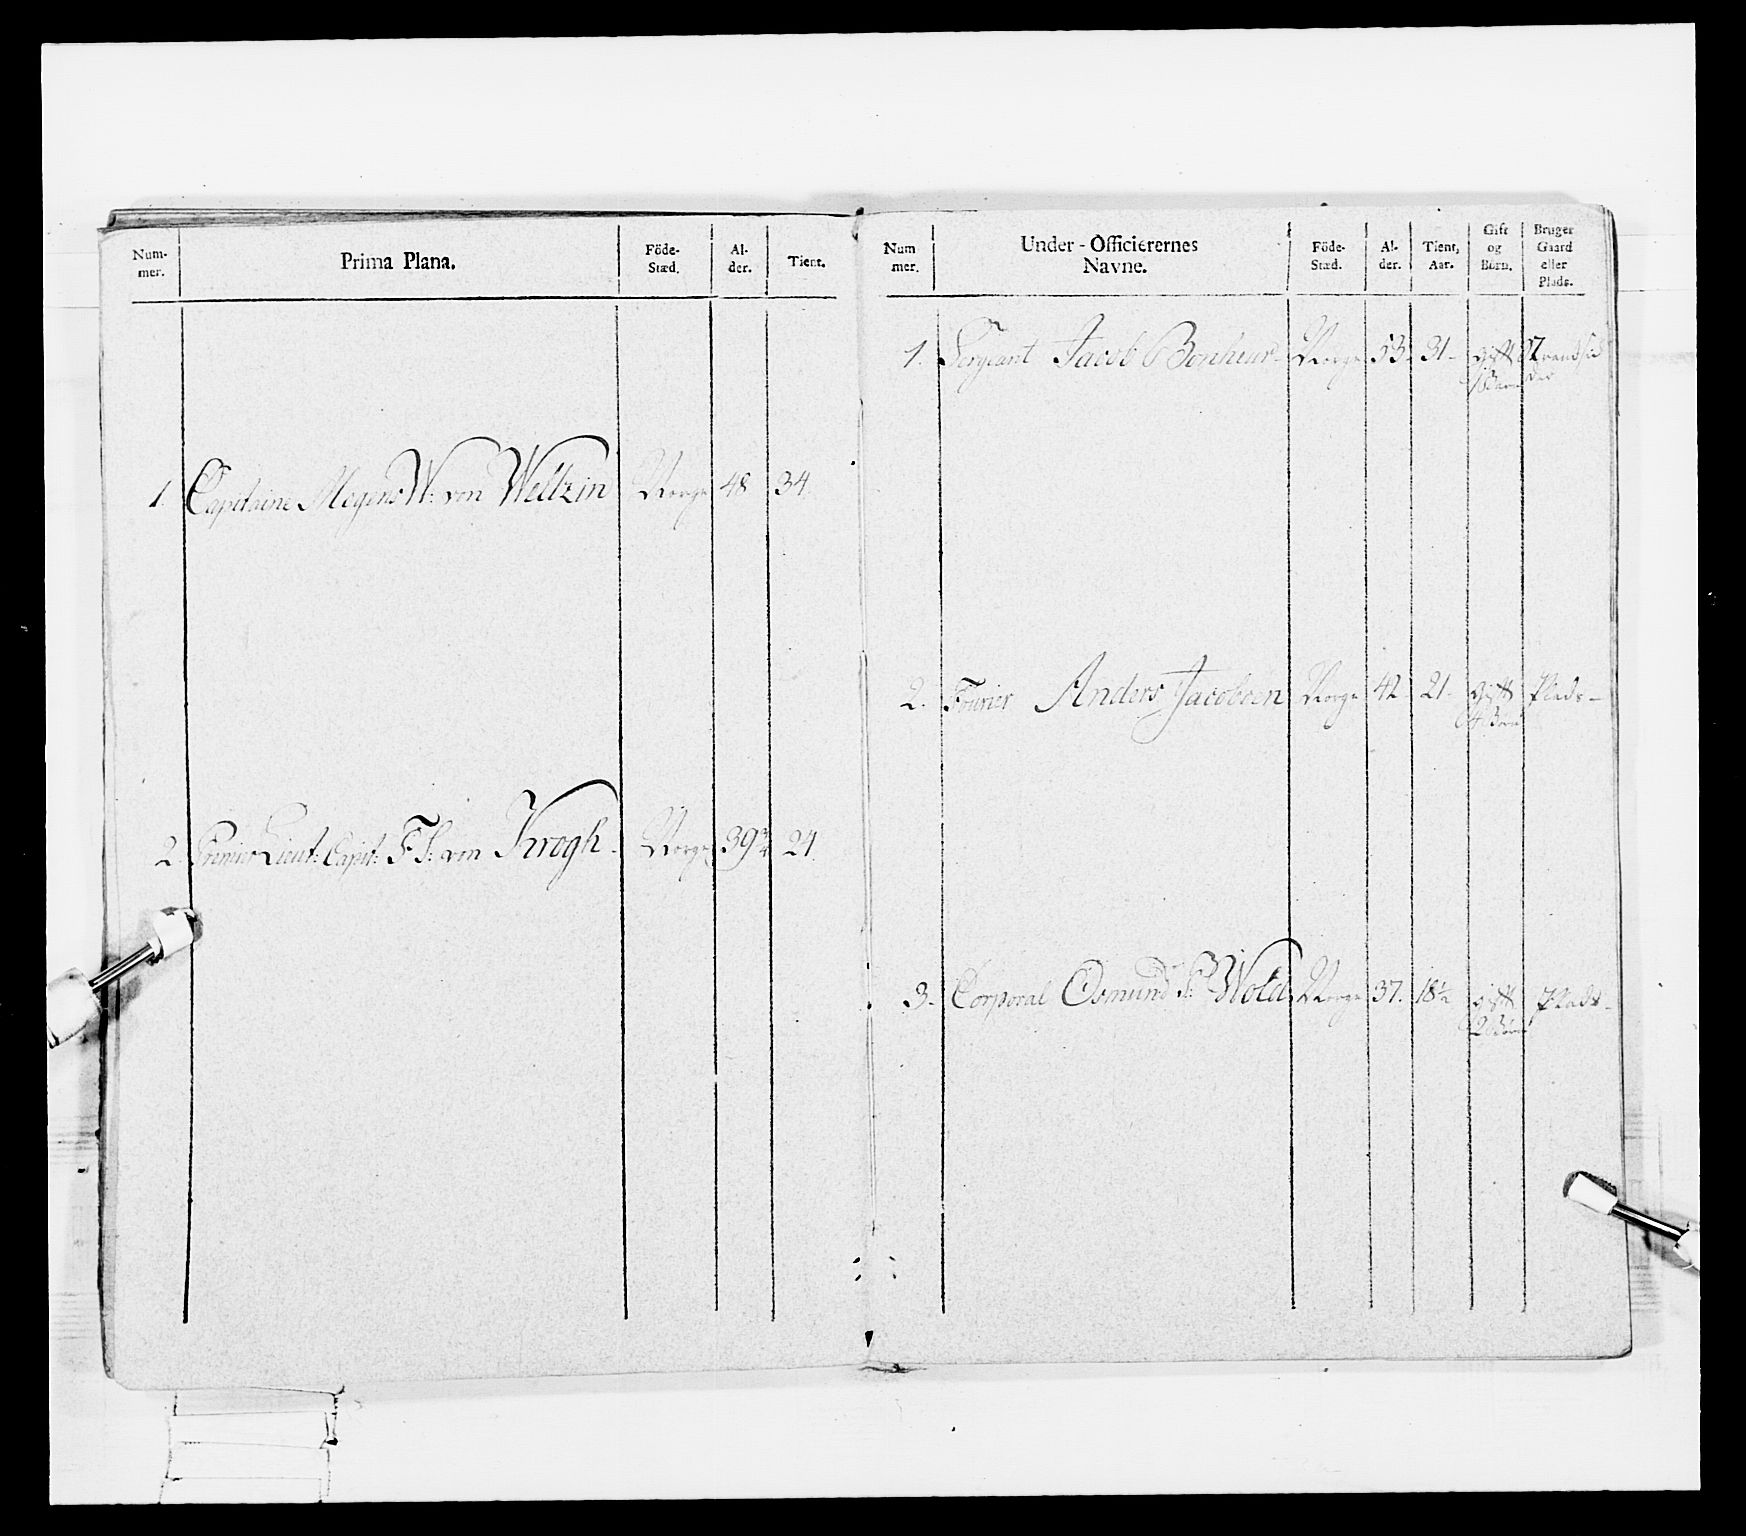 Num-
mer.
Prima Plana.
Föde-
Stæd.
Al-
der.
Tient.
1. Capitaine Mogens W: von Weltzin Norge 48 34.
2. Premier Lieut: Capit: F: S: von Krogh. Norge 39¾ 24.
Num
mer.
Under-Officierernes
Navne.
Föde-
Stæd.
Al-
der.
Tient,
Aar.
Gift
og
Børn.
Bruger
Gaard
eller
Plads.
1. Sergeant Jacob Bonheur- Norge 53. 31- gift
1 Barn
2. Fourier Anders Jacobsen Norge 42 21- gift Plads-
4 Børn
3. Corporal Osmund S: Wold Norge 37. 18½ gift Plads-
2 Børn